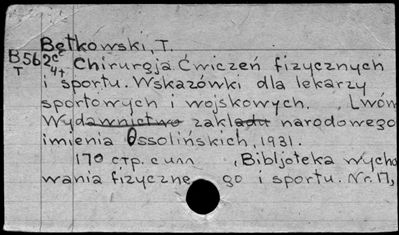 Bętkowski, T.
B562cc Chirurgja Ćwiczeń fizycznych
T 4+ i sportu. Wskazówki dla lekarzy
sportowych i wojskowych. Lwów
Wydawnictwo zakładu narodowego
imienia Ossolińskich, 1931.
170 стр. с илл , Bibljoteka wycho
wania fizyczne go i sportu. Nr. 17,